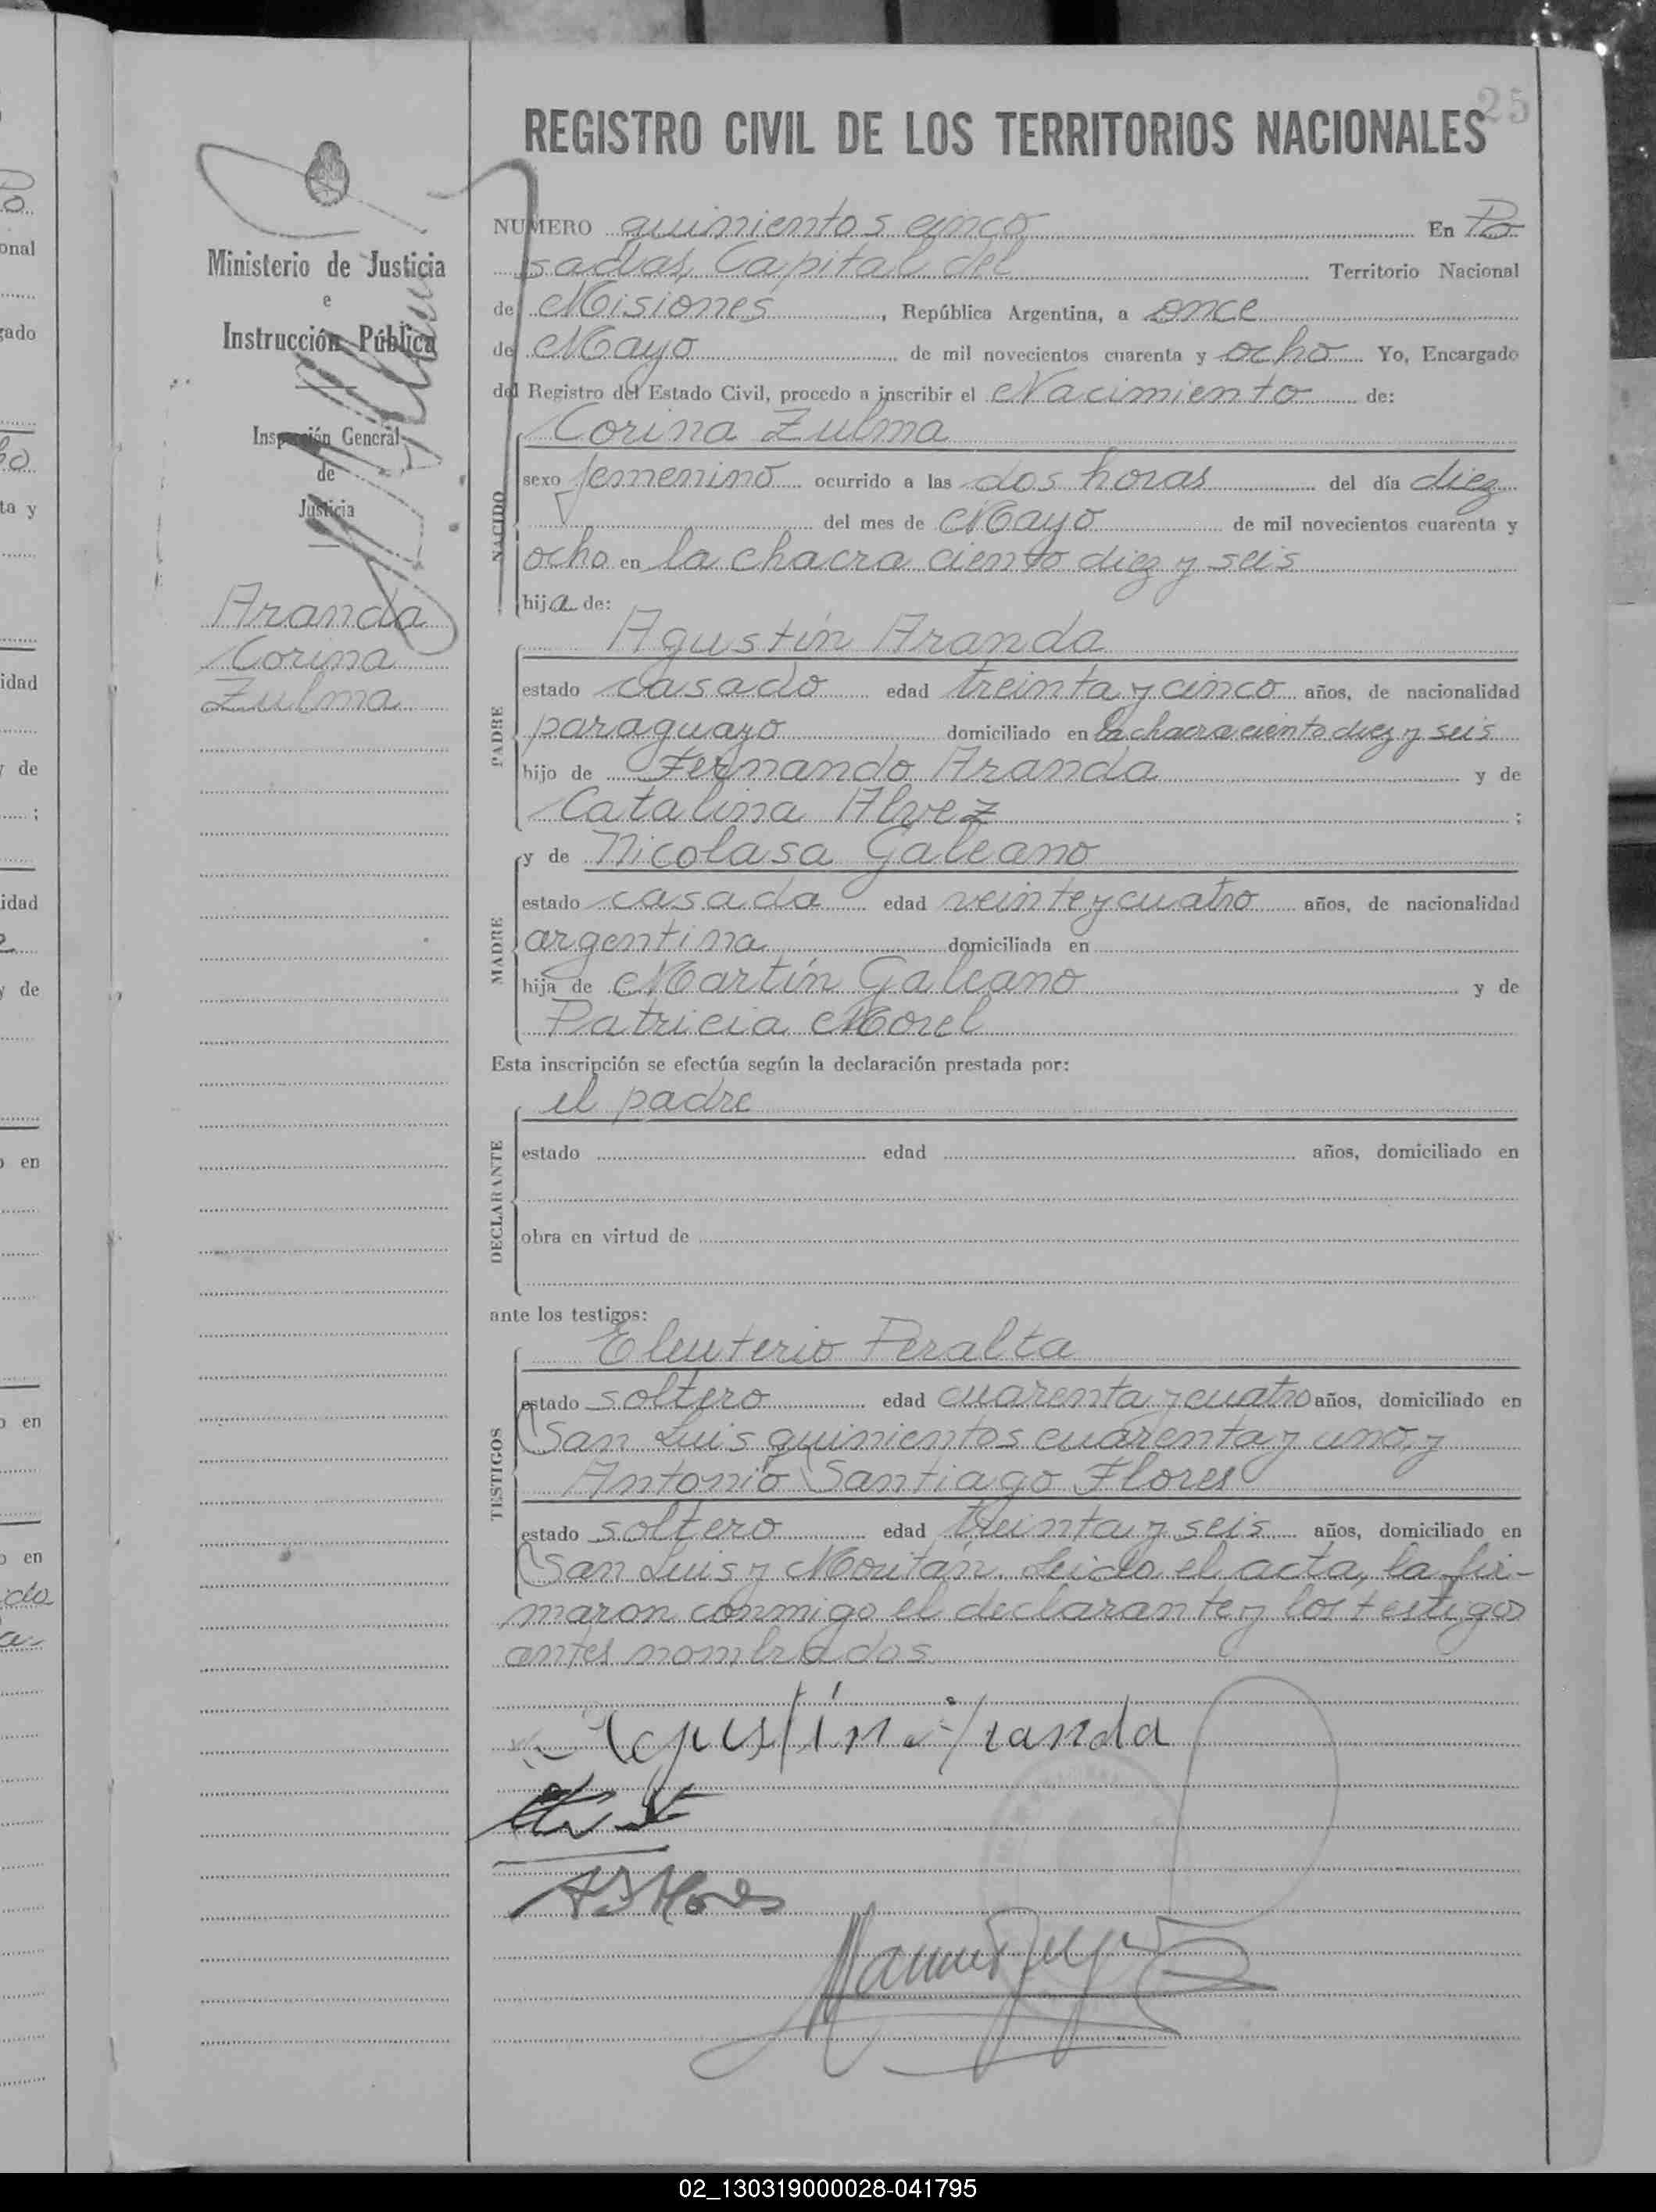 25
REGISTRO CIVIL DE LOS TERRITORIOS NACIONALES
Ministerio de Justicia
e
Instrucción Pública
Inspección General
de
Justicia
Aranda
Corina
Zulma
NUMERO quinientos cinco En Po
sadas, Capital del Territorio Nacional
de Misiones, República Argentina, a once
de Mayo de mil novecientos cuarenta y ocho Yo, Encargado
del Registro del Estado Civil, procedo a inscribir el Nacimiento de:
NACIDO
Corina Zulma
sexo femenino ocurrido a las dos horas del día diez
del mes de Mayo de mil novecientos cuarenta y
ocho en la chacra ciento diez y seis
hija de:
PADRE
Agustín Aranda
estado casado edad treinta y cinco años, de nacionalidad
paraguayo domiciliado en la chacra ciento diez y seis
hijo de Fernando Aranda y de
Catalina Alvez ;
MADRE
y de Nicolasa Galeano
estado casada edad veinte y cuatro años, de nacionalidad
argentina domiciliada en
hija de Martín Galeano y de
Patricia Morel
Esta inscripción se efectúa según la declaración prestada por:
DECLARANTE
el padre
estado edad años, domiciliado en
obra en virtud de
ante los testigos:
TESTIGOS
Eleuterio Peralta
estado soltero edad cuarenta y cuatro años, domiciliado en
San Luis quinientos cuarenta y uno, y
Antonio Santiago Flores
estado soltero edad treinta y seis años, domiciliado en
San Luis y Moritán. Leida el acta, la fir-
maron conmigo el declarante y los testigos
antes nombrados
Agustín Aranda
A S Flores
02_130319000028-041795